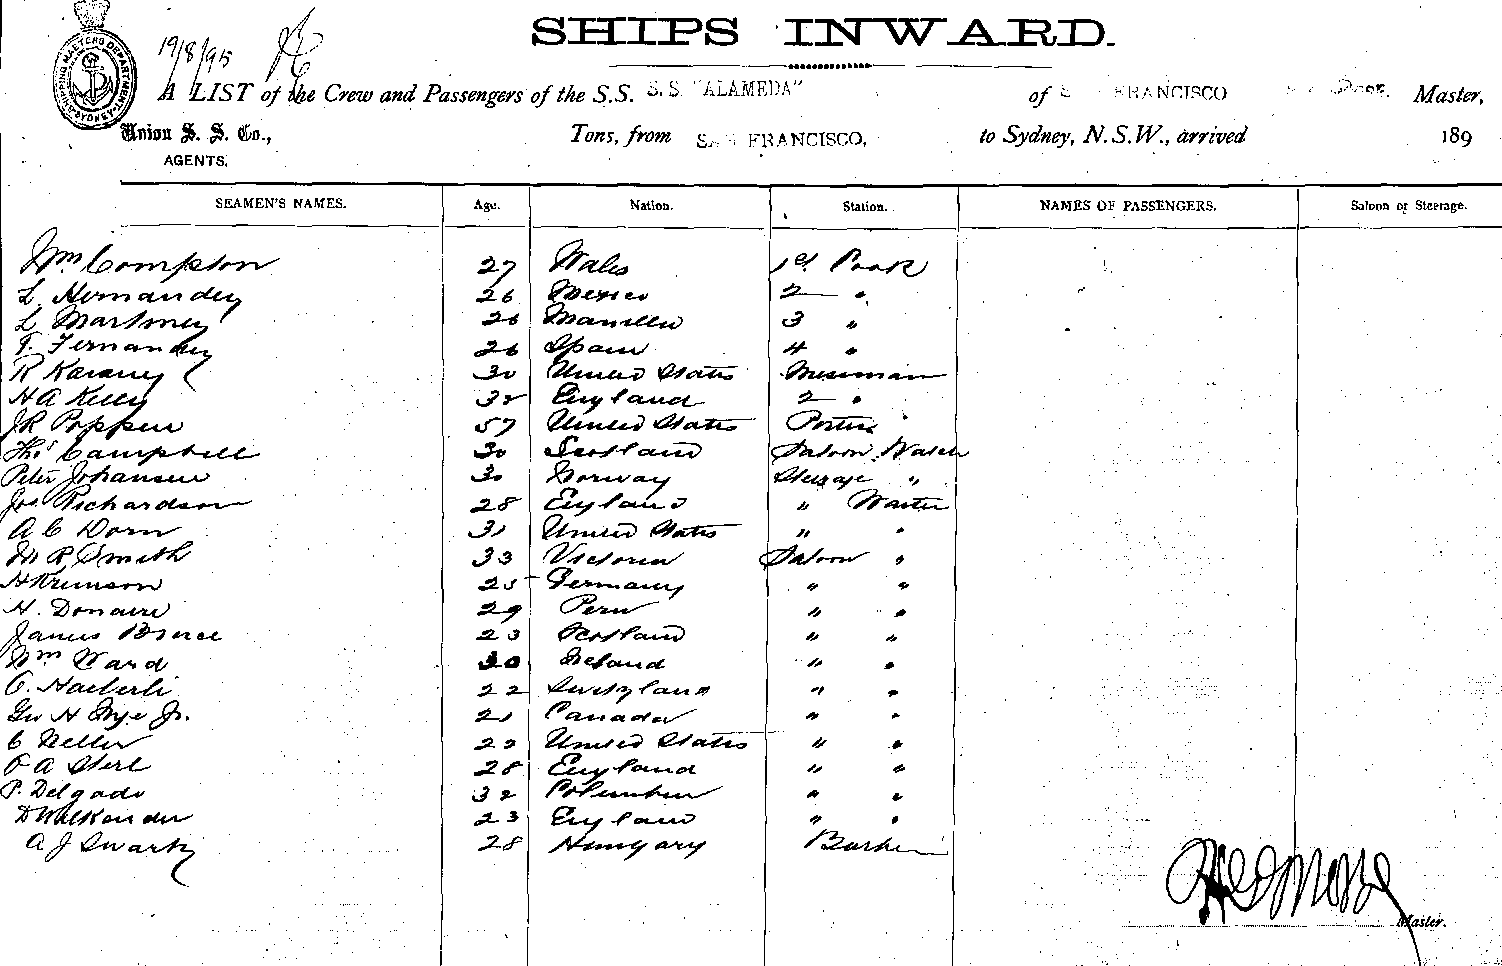 SHIPS INWARD.
19/8/95
A LIST of the Crew and Passengers of the S.S. S.S. "ALAMEDA" of FRANCISCO Master,
Union S. S. Co., Tons, from SAN FRANCISCO, to Sydney, N.S.W., arrived 189
AGENTS.
SHIPPING MASTERS DEPARTMENT SYDNEY
SEAMEN'S NAMES. Age. Nation. Station. NAMES OF PASSENGERS. Saloon or Steerage.
Wm Compton 27 Wales 1st Cook
L. Hernandez 26 Mexico 2 "
L Martinez 26 Manilla 3 "
F. Fernandez 26 Spain 4 "
R 30 United States Messman
H A Kelly 38 England 2 "
J R 57 United States Porter "
Thos Campbell 30 Scotland Saloon Watch
Peter Johansen 30 Norway Steerage "
Jos Richardson 28 England " Waiter
A C Dorn 31 United States " "
M R Smith 33 Victoria Saloon "
25 Germany " "
H. Donaire 29 Peru " "
James Bruce 23 Scotland " "
Wm Ward 30 Ireland " "
C. Haeberli 22 Switzland " "
Geo H Nye Jr. 21 Canada " "
C 22 United States " "
28 England " "
P. Delgado 32 Columbia " "
D 23 England " "
A J Swartz 28 Hungary Barber
Master.